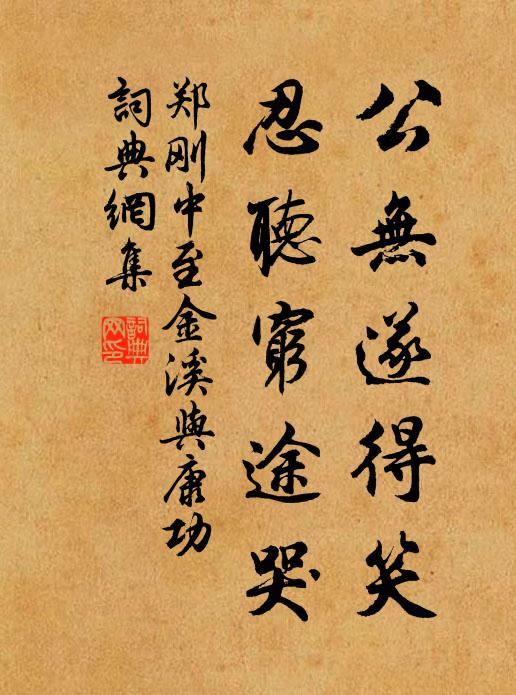 公無遂得笑
忍聽窮途哭
郑刚中至金溪與康功
詞典網集
詞典网印